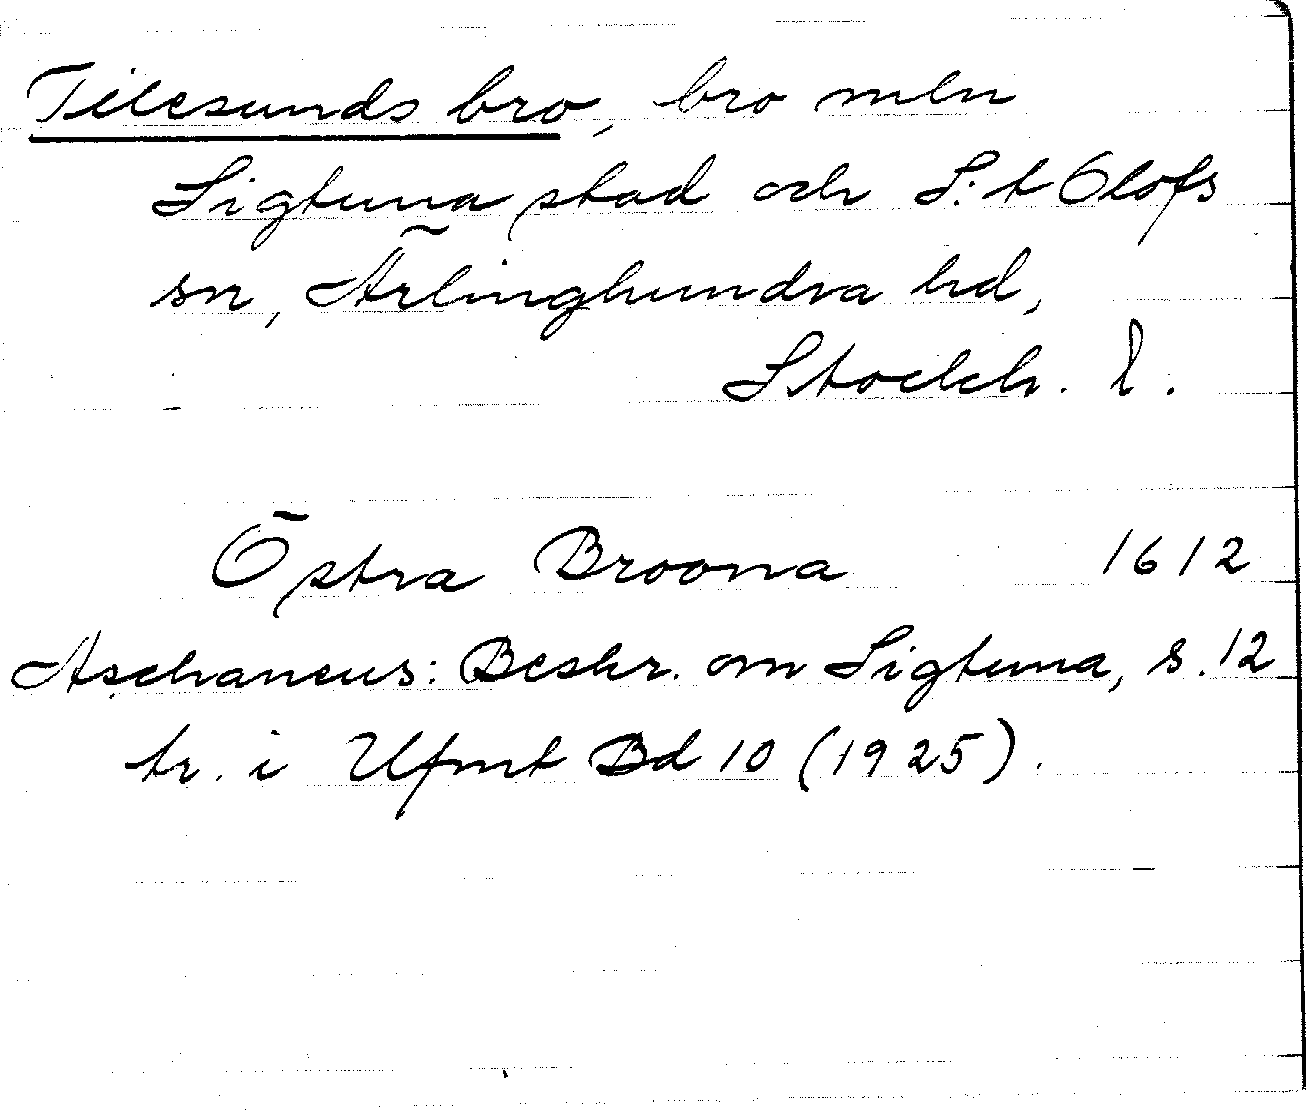 Tilesunds bro, bro mln
Sigtuna stad och S:t Olofs
sn, Ärlinghundra hd,
Stockh. l.
Östra Broona 1612
Aschaneus: Beskr. om Sigtuna, s. 12
tr. i Ufmt Bd 10 (1925).